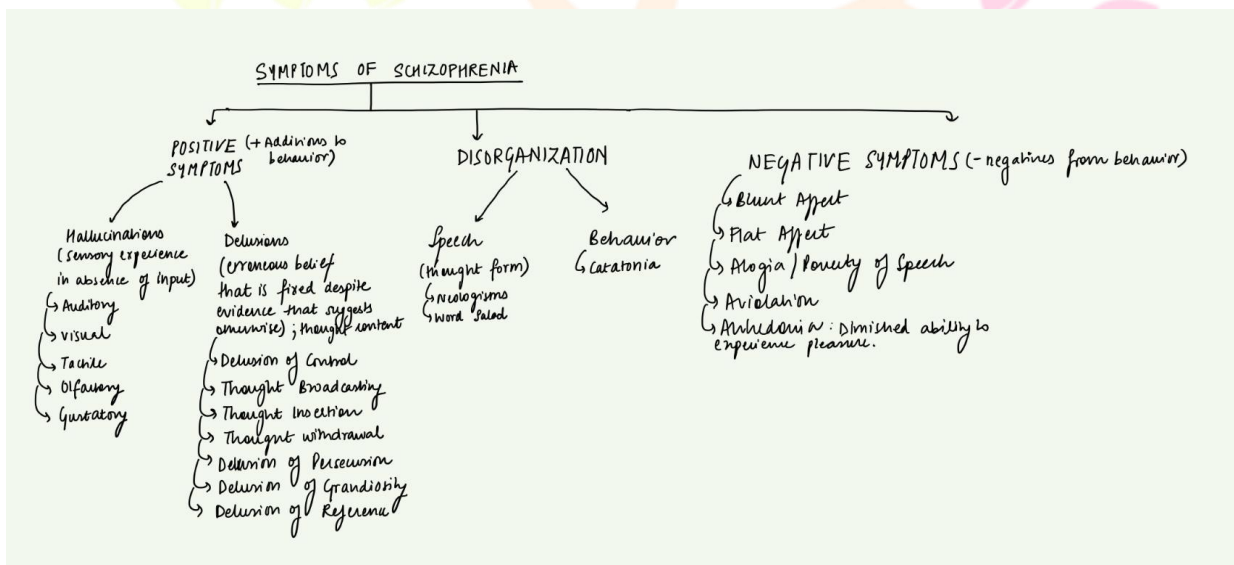 SYMPTOMS OF SCHIZOPHRENIA
POSITIVE (+ Additions to
behavior)
SYMPTOMS
Hallucinations
(sensory experience
in absence of input)
Auditory
Visual
Tactile
Olfactory
Gustatory
Delusions
(erroneous belief
that is fixed despite
evidence that suggests
otherwise) ; thought content
Delusion of Control
Thought Broadcasting
Thought Insertion
Thought withdrawal
Delusion of Persecution
Delusion of Grandiosity
Delusion of Reference
DISORGANIZATION
Speech
(thought form)
Neologisms
Word Salad
Behavior
Catatonia
NEGATIVE SYMPTOMS (- negatives from behavior)
Blunt Affect
Flat Affect
Alogia / Poverty of Speech
Aviolation
Anhedonia : Diminished ability to
experience pleasure.